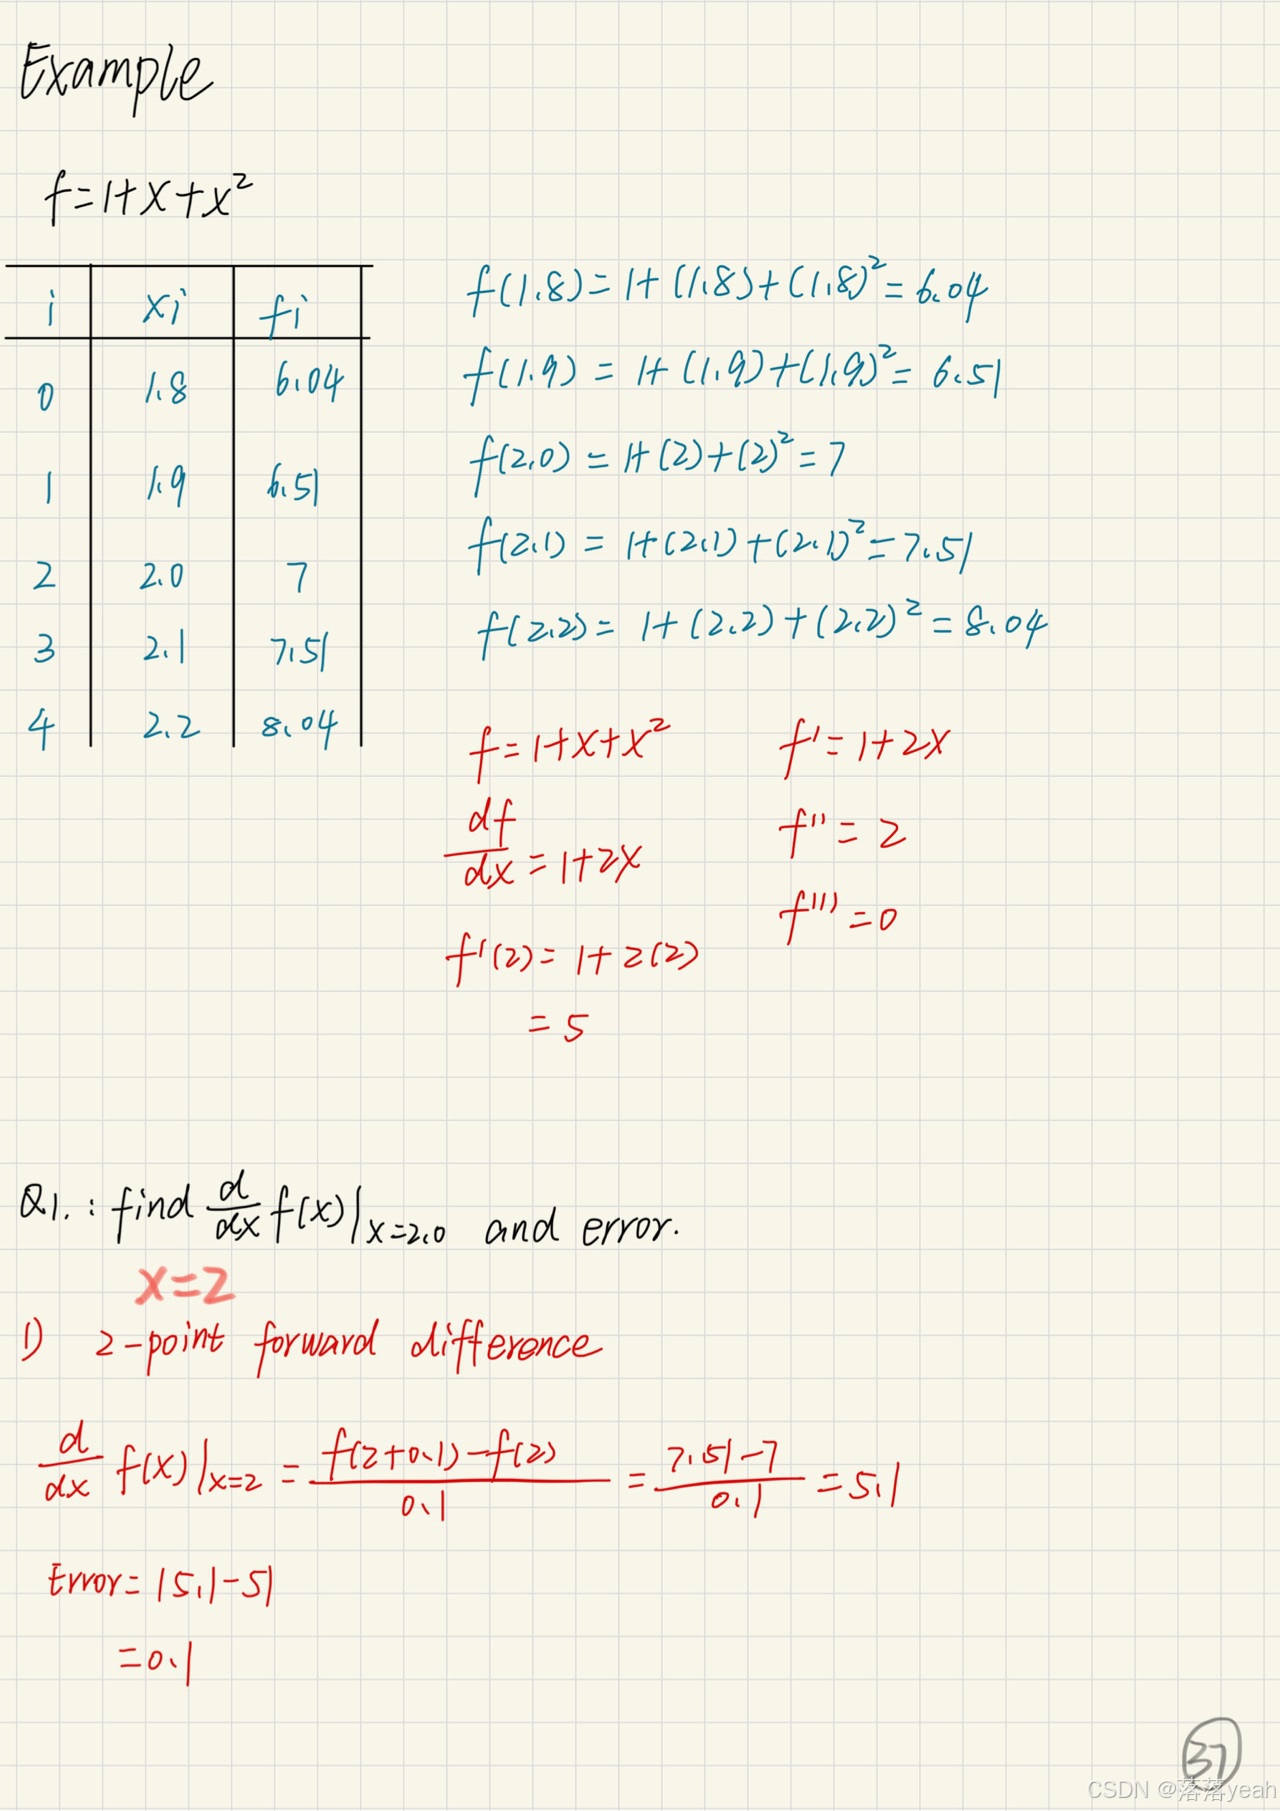 Example
f=1+x+x²
i xi fi
0 1.8 6.04
1 1.9 6.51
2 2.0 7
3 2.1 7.51
4 2.2 8.04
f(1.8)=1+(1.8)+(1.8)²=6.04
f(1.9)=1+(1.9)+(1.9)²=6.51
f(2.0)=1+(2)+(2)²=7
f(2.1)=1+(2.1)+(2.1)²=7.51
f(2.2)=1+(2.2)+(2.2)²=8.04
f=1+x+x²
df/dx=1+2x
f'(2)=1+2(2)
=5
f'=1+2x
f''=2
f'''=0
Q1.: find d/dx f(x)|x=2.0 and error.
x=2
1) 2-point forward difference
d/dx f(x)|x=2 = (f(2+0.1)-f(2))/0.1 = (7.51-7)/0.1 = 5.1
Error=|5.1-5|
=0.1
37
CSDN @落落yeah